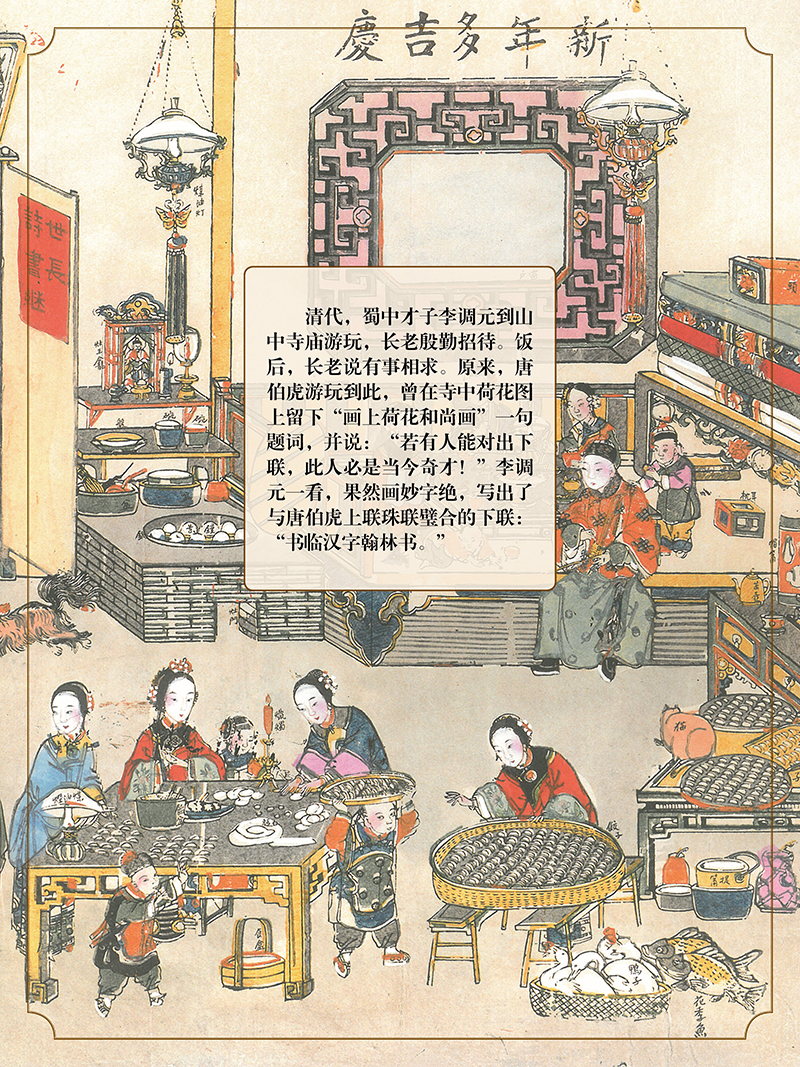 新年多吉慶
世長
詩書継
煤油灯
清代，蜀中才子李调元到山
中寺庙游玩，长老殷勤招待。饭
后，长老说有事相求。原来，唐
伯虎游玩到此，曾在寺中荷花图
上留下“画上荷花和尚画”一句
题词，并说：“若有人能对出下
联，此人必是当今奇才！”李调
元一看，果然画妙字绝，写出了
与唐伯虎上联珠联璧合的下联：
“书临汉字翰林书。”
猫
鸭子
花李魚